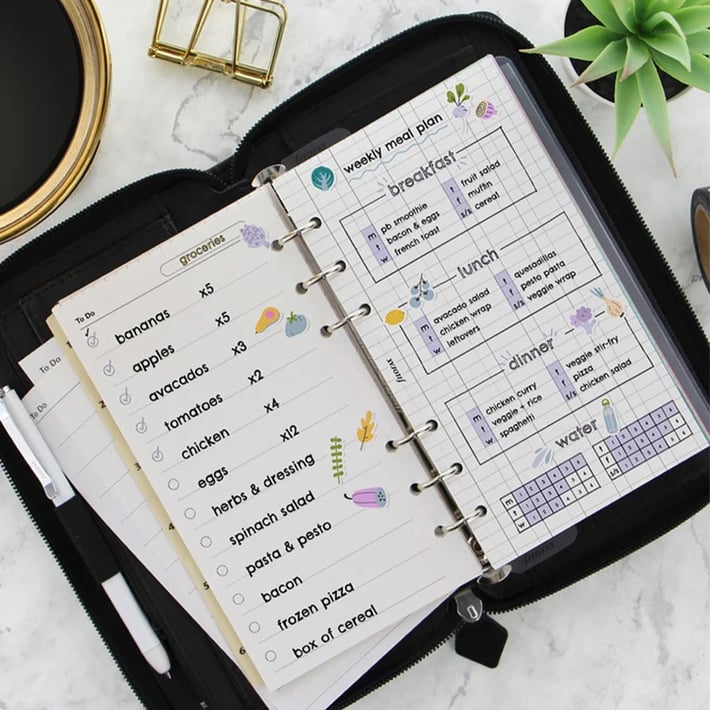 groceries
To Do
bananas x5
apples x5
avacados x3
tomatoes x2
chicken x4
eggs x12
herbs & dressing
spinach salad
pasta & pesto
bacon
frozen pizza
box of cereal
To Do
To Do
weekly meal plan
breakfast
m pb smoothie
t bacon & eggs
w french toast
t fruit salad
f muffin
s/s cereal
lunch
m avocado salad
t chicken wrap
w leftovers
t quesadillas
f pesto pasta
s/s veggie wrap
filofax
dinner
m chicken curry
t veggie + rice
w spaghetti
t veggie stir-fry
f pizza
s/s chicken salad
water